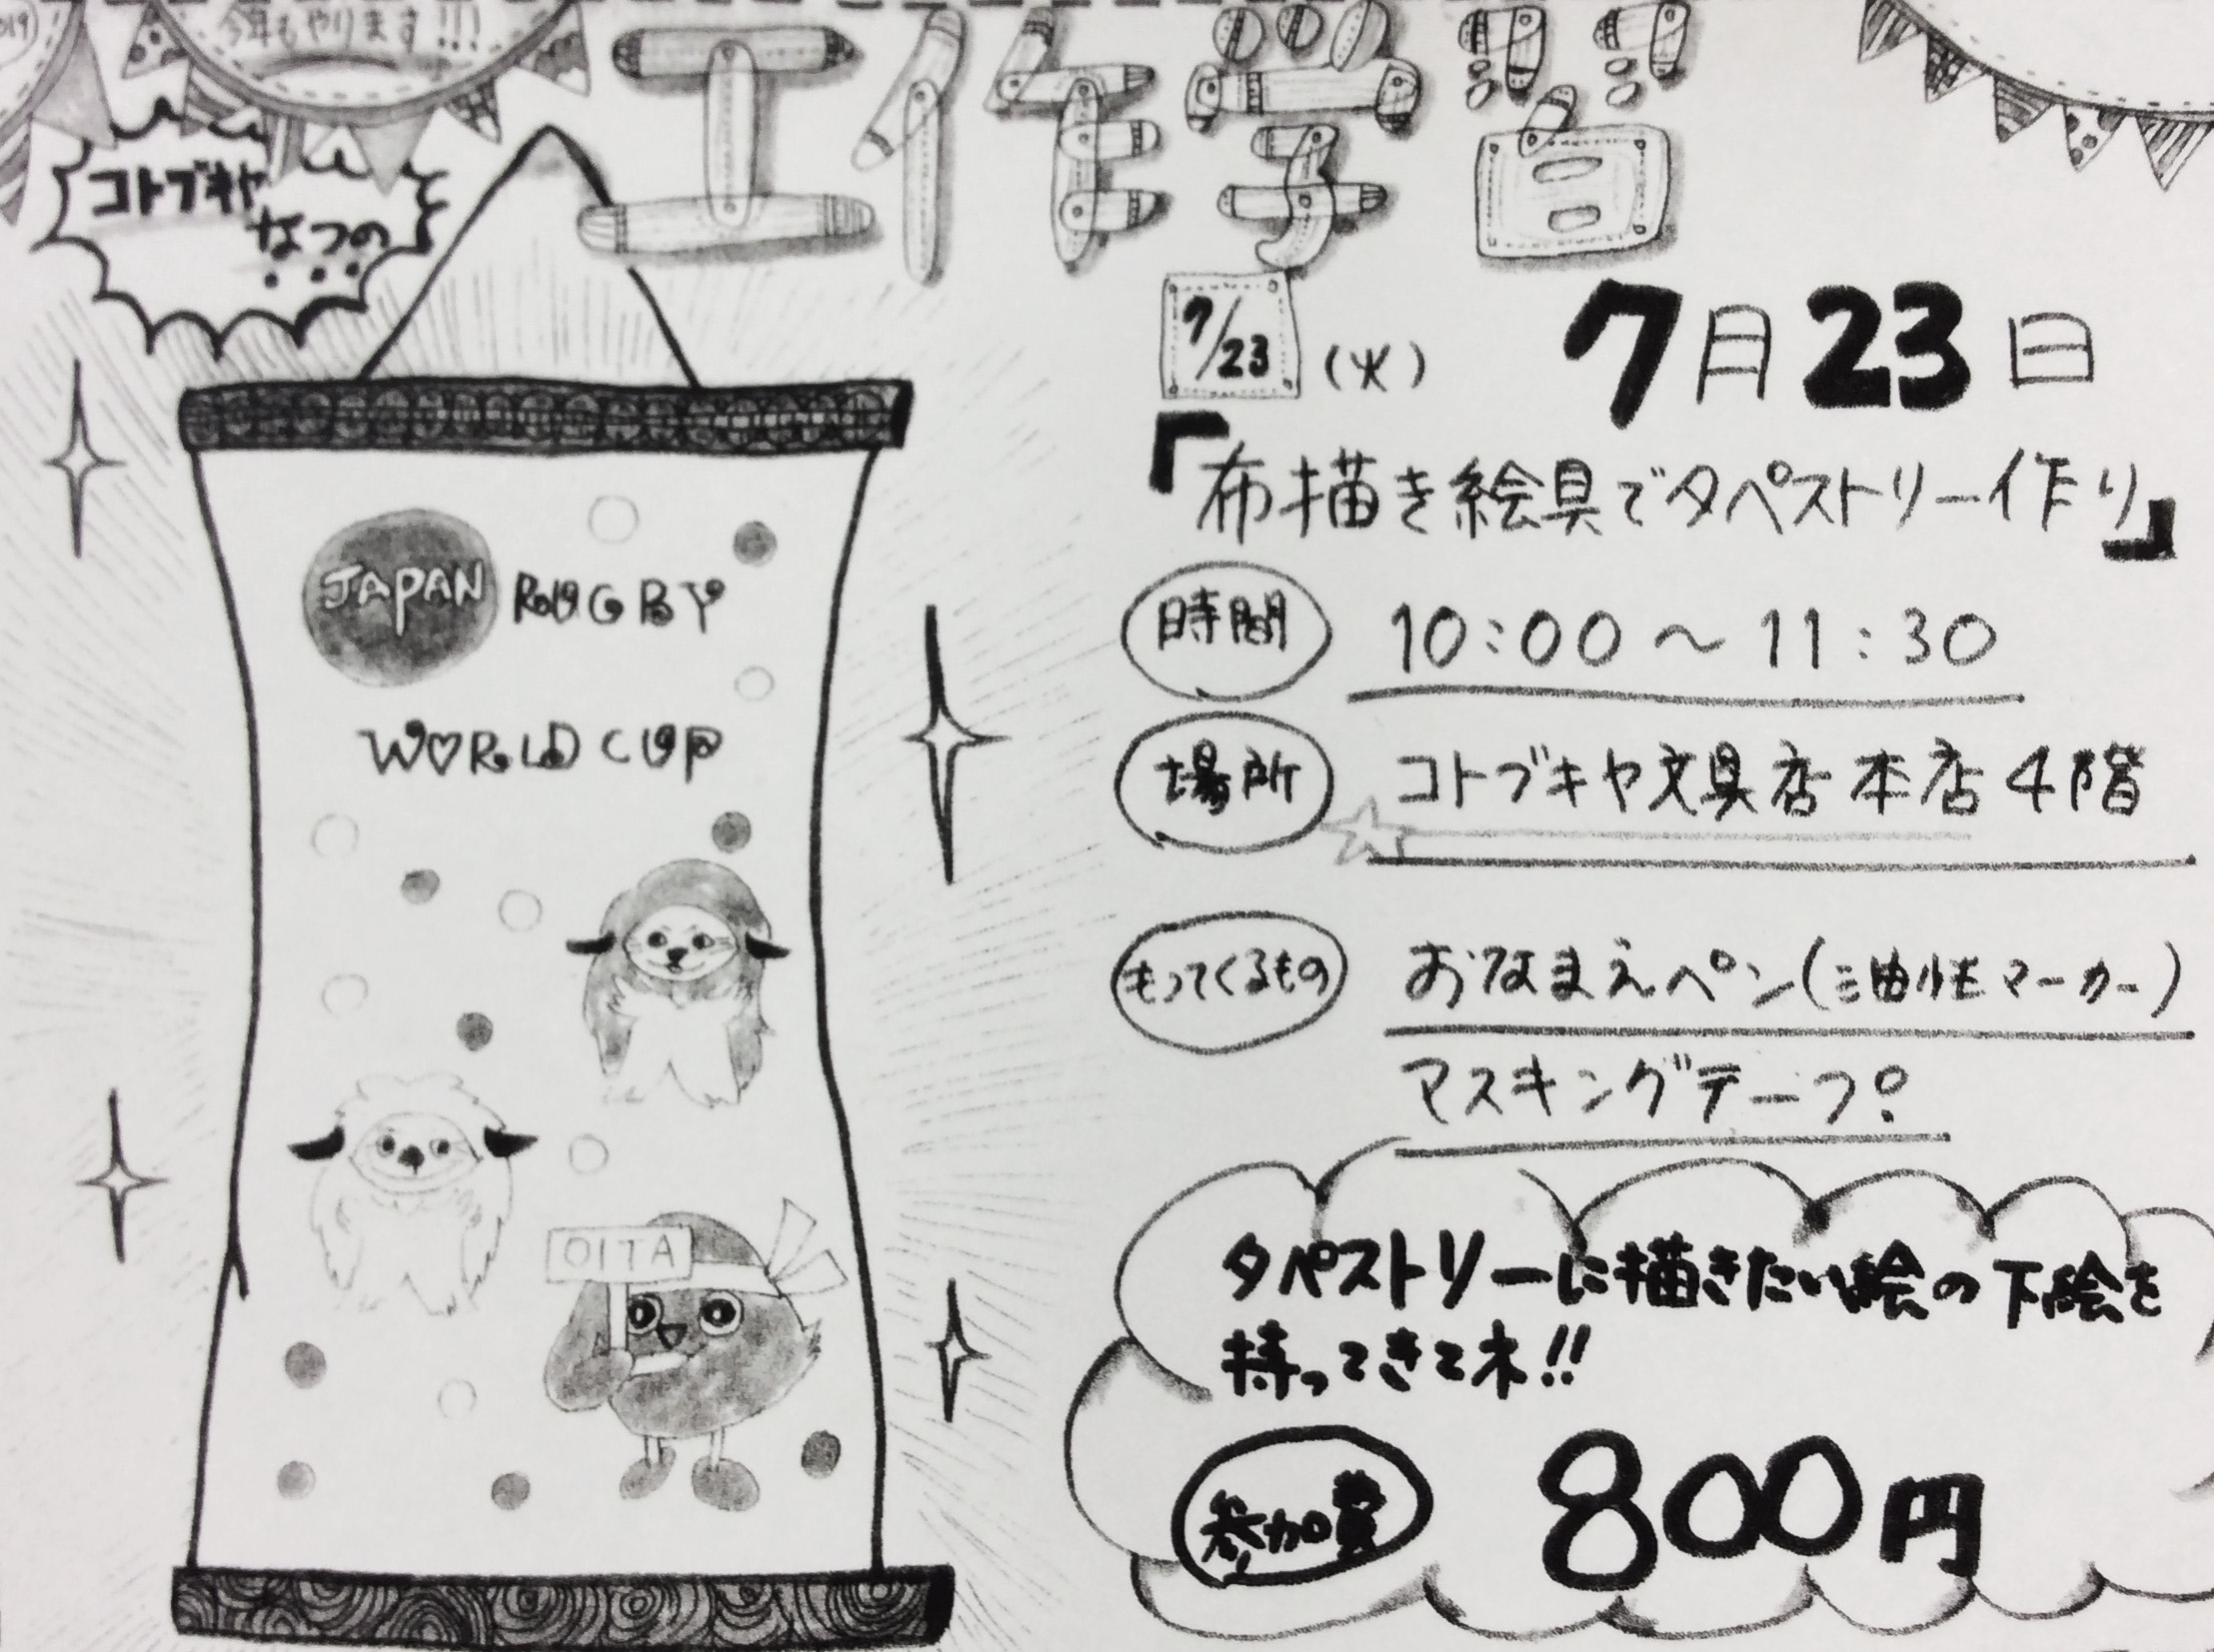 2019
今年もやります!!!
コトブキヤ
なつの
工作学習
7/23
(火)
7月23日
『布描き絵具でタペストリー作り』
時間 10:00～11:30
場所 コトブキヤ文具店本店4階
もってくるもの おなまえペン(油性マーカー)
マスキングテープ
タペストリーに描きたい絵の下絵を
持ってきてネ!!
参加費 800円
JAPAN RUGBY
WORLD CUP
OITA